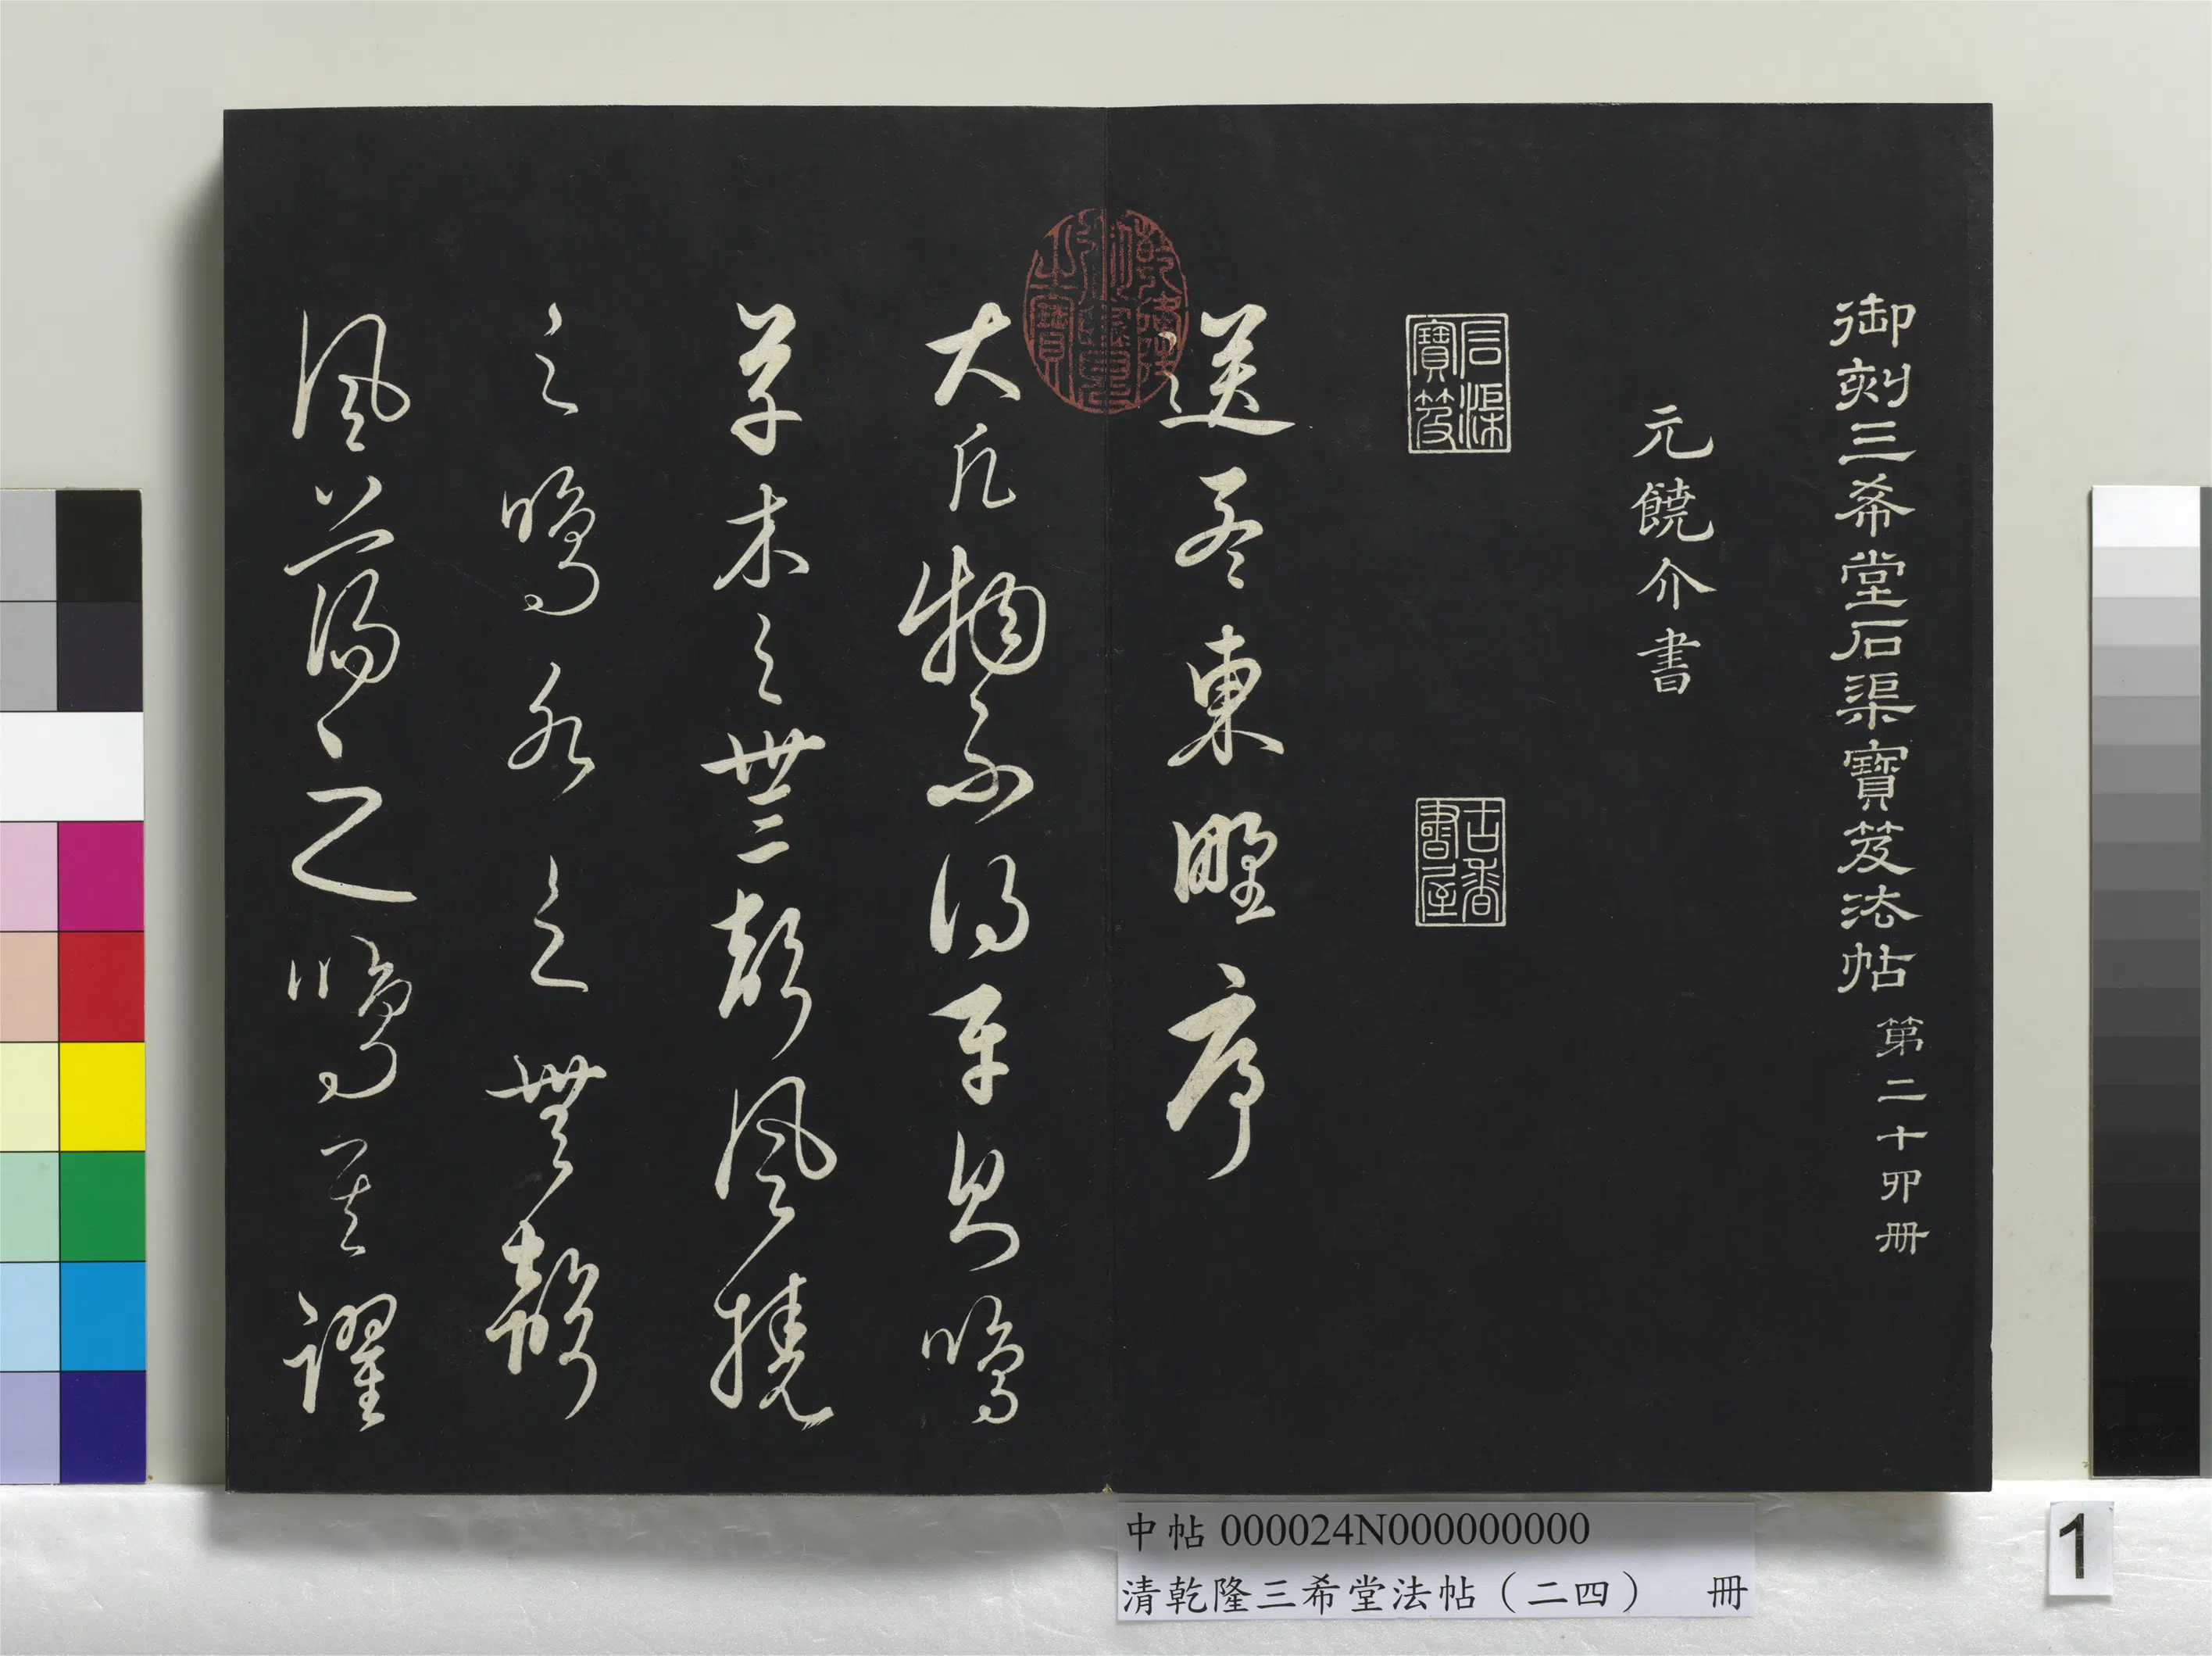 御刻三希堂石渠寶笈法帖 第二十四冊
元饒介書
石渠寶笈
古香書屋
送孟東野序
大凡物不得平則鳴
草木之無聲風撓
之鳴水之無聲
風蕩之鳴其躍
中帖 000024N000000000
清乾隆三希堂法帖（二四） 冊
1